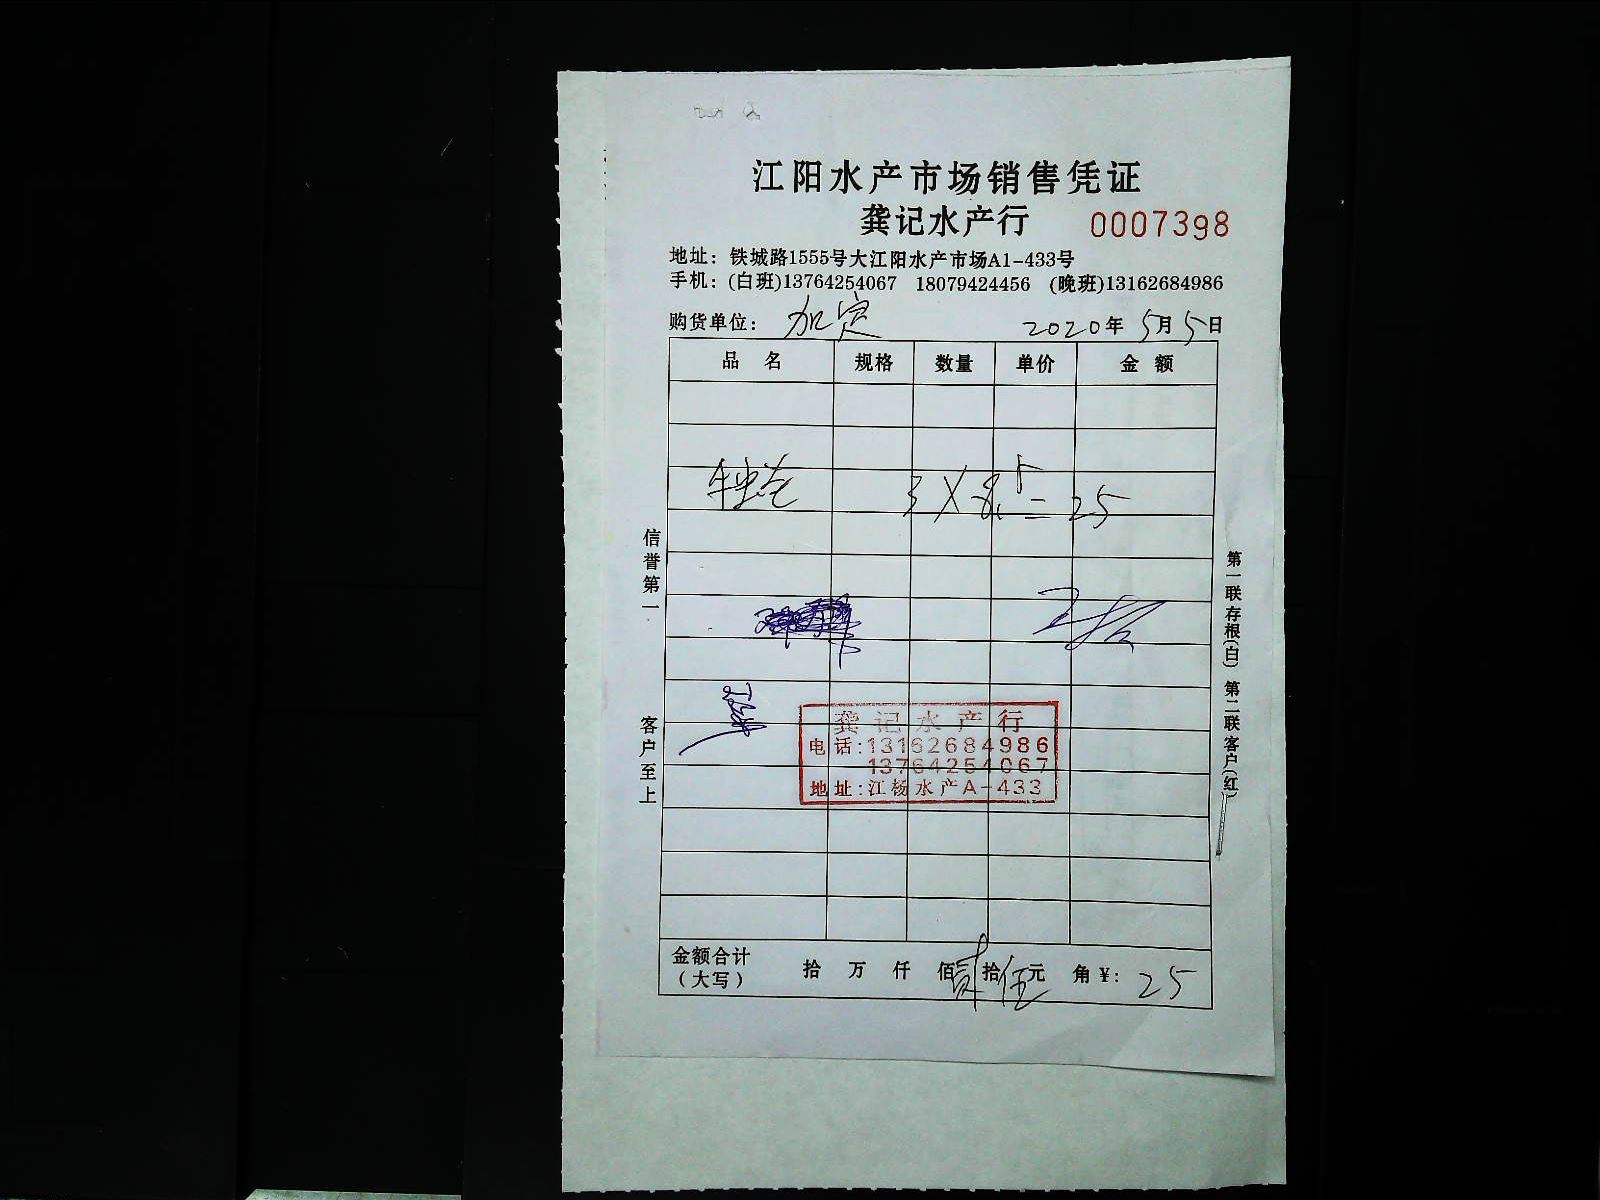 江阳水产市场销售凭证
龚记水产行 0007398
地址：铁城路1555号大江阳水产市场A1-433号
手机：(白班)13764254067 18079424456 (晚班)13162684986
购货单位： 加定 2020年5月5日
品 名 规格 数量 单价 金 额
牛蛙 3X = 25
信誉第一
客户至上
龚记水产行
电话:13162684986
13764254067
地址:江杨水产A-433
第一联存根(白) 第二联客户(红)
金额合计 拾 万 仟 佰贰拾伍元 角￥: 25
（大写）